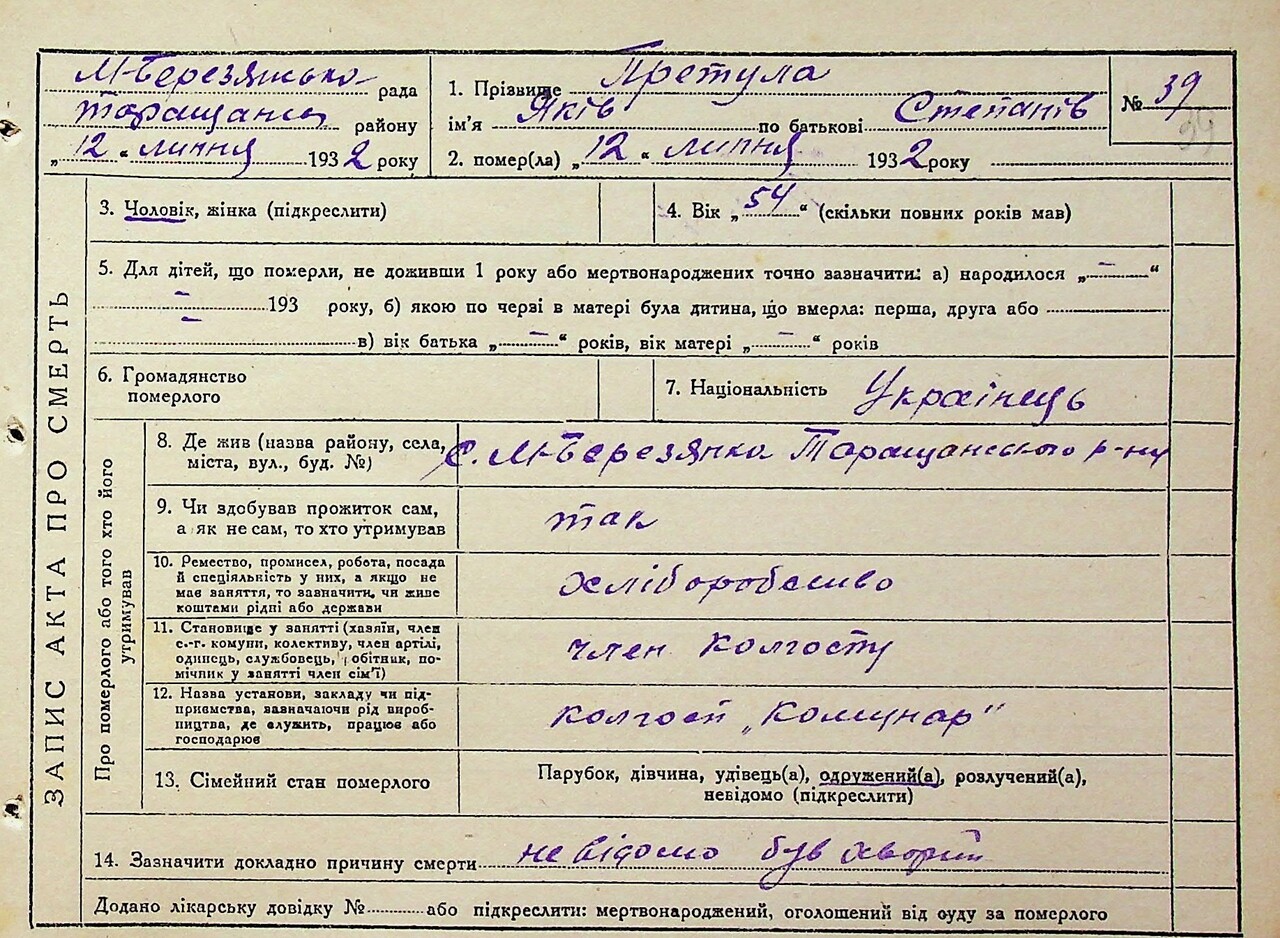 М-Березянсько рада
Таращансь району
„12“ липня 1932 року
1. Прізвище Претула
ім'я Яків по батькові Степанів
2. помер(ла) „12“ липня 1932 року
№ 39
39
ЗАПИС АКТА ПРО СМЕРТЬ
3. Чоловік, жінка (підкреслити)
4. Вік „54“ (скільки повних років мав)
5. Для дітей, що померли, не доживши 1 року або мертвонароджених точно зазначити: а) народилося „–“
– 193 року, б) якою по черзі в матері була дитина, що вмерла: перша, друга або
– в) вік батька „–“ років, вік матері „–“ років
6. Громадянство
померлого
7. Національність Українець
Про померлого або того хто його
утримував
8. Де жив (назва району, села,
міста, вул., буд. №)
с. М-Березянка Таращанського р-ну
9. Чи здобував прожиток сам,
а як не сам, то хто утримував
так
10. Ремество, промисел, робота, посада
й спеціяльність у них, а якщо не
має заняття, то зазначити, чи живе
коштами рідні або держави
хліборобство
11. Становище у занятті (хазяїн, член
с.-г. комуни, колективу, член артілі,
одинець, службовець, робітник, по-
мічник у занятті член сім'ї)
член колгосту
12. Назва установи, закладу чи під-
приємства, зазначаючи рід вироб-
ництва, де служить, працює або
господарює
колгосп „Комунар"
13. Сімейний стан померлого
Парубок, дівчина, удівець(а), одружений(а), розлучений(а),
невідомо (підкреслити)
14. Зазначити докладно причину смерти невідомо був хворий
Додано лікарську довідку № або підкреслити: мертвонароджений, оголошений від суду за померлого